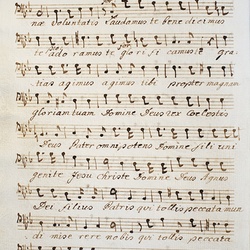 næ voluntatis Laudamus te bene dicimus
te ado ramus te glori fi camus te gra
tias agimus agimus tibi propter magnam
gloriam tuam Domine Deus Rex Coelestis
Deus Pater omnipotens Domine fili uni
genite Jesu Christe Domine Deus Agnus
Dei filius Patris qui tollis peccata mun
di mise rere nobis qui tollis peccata